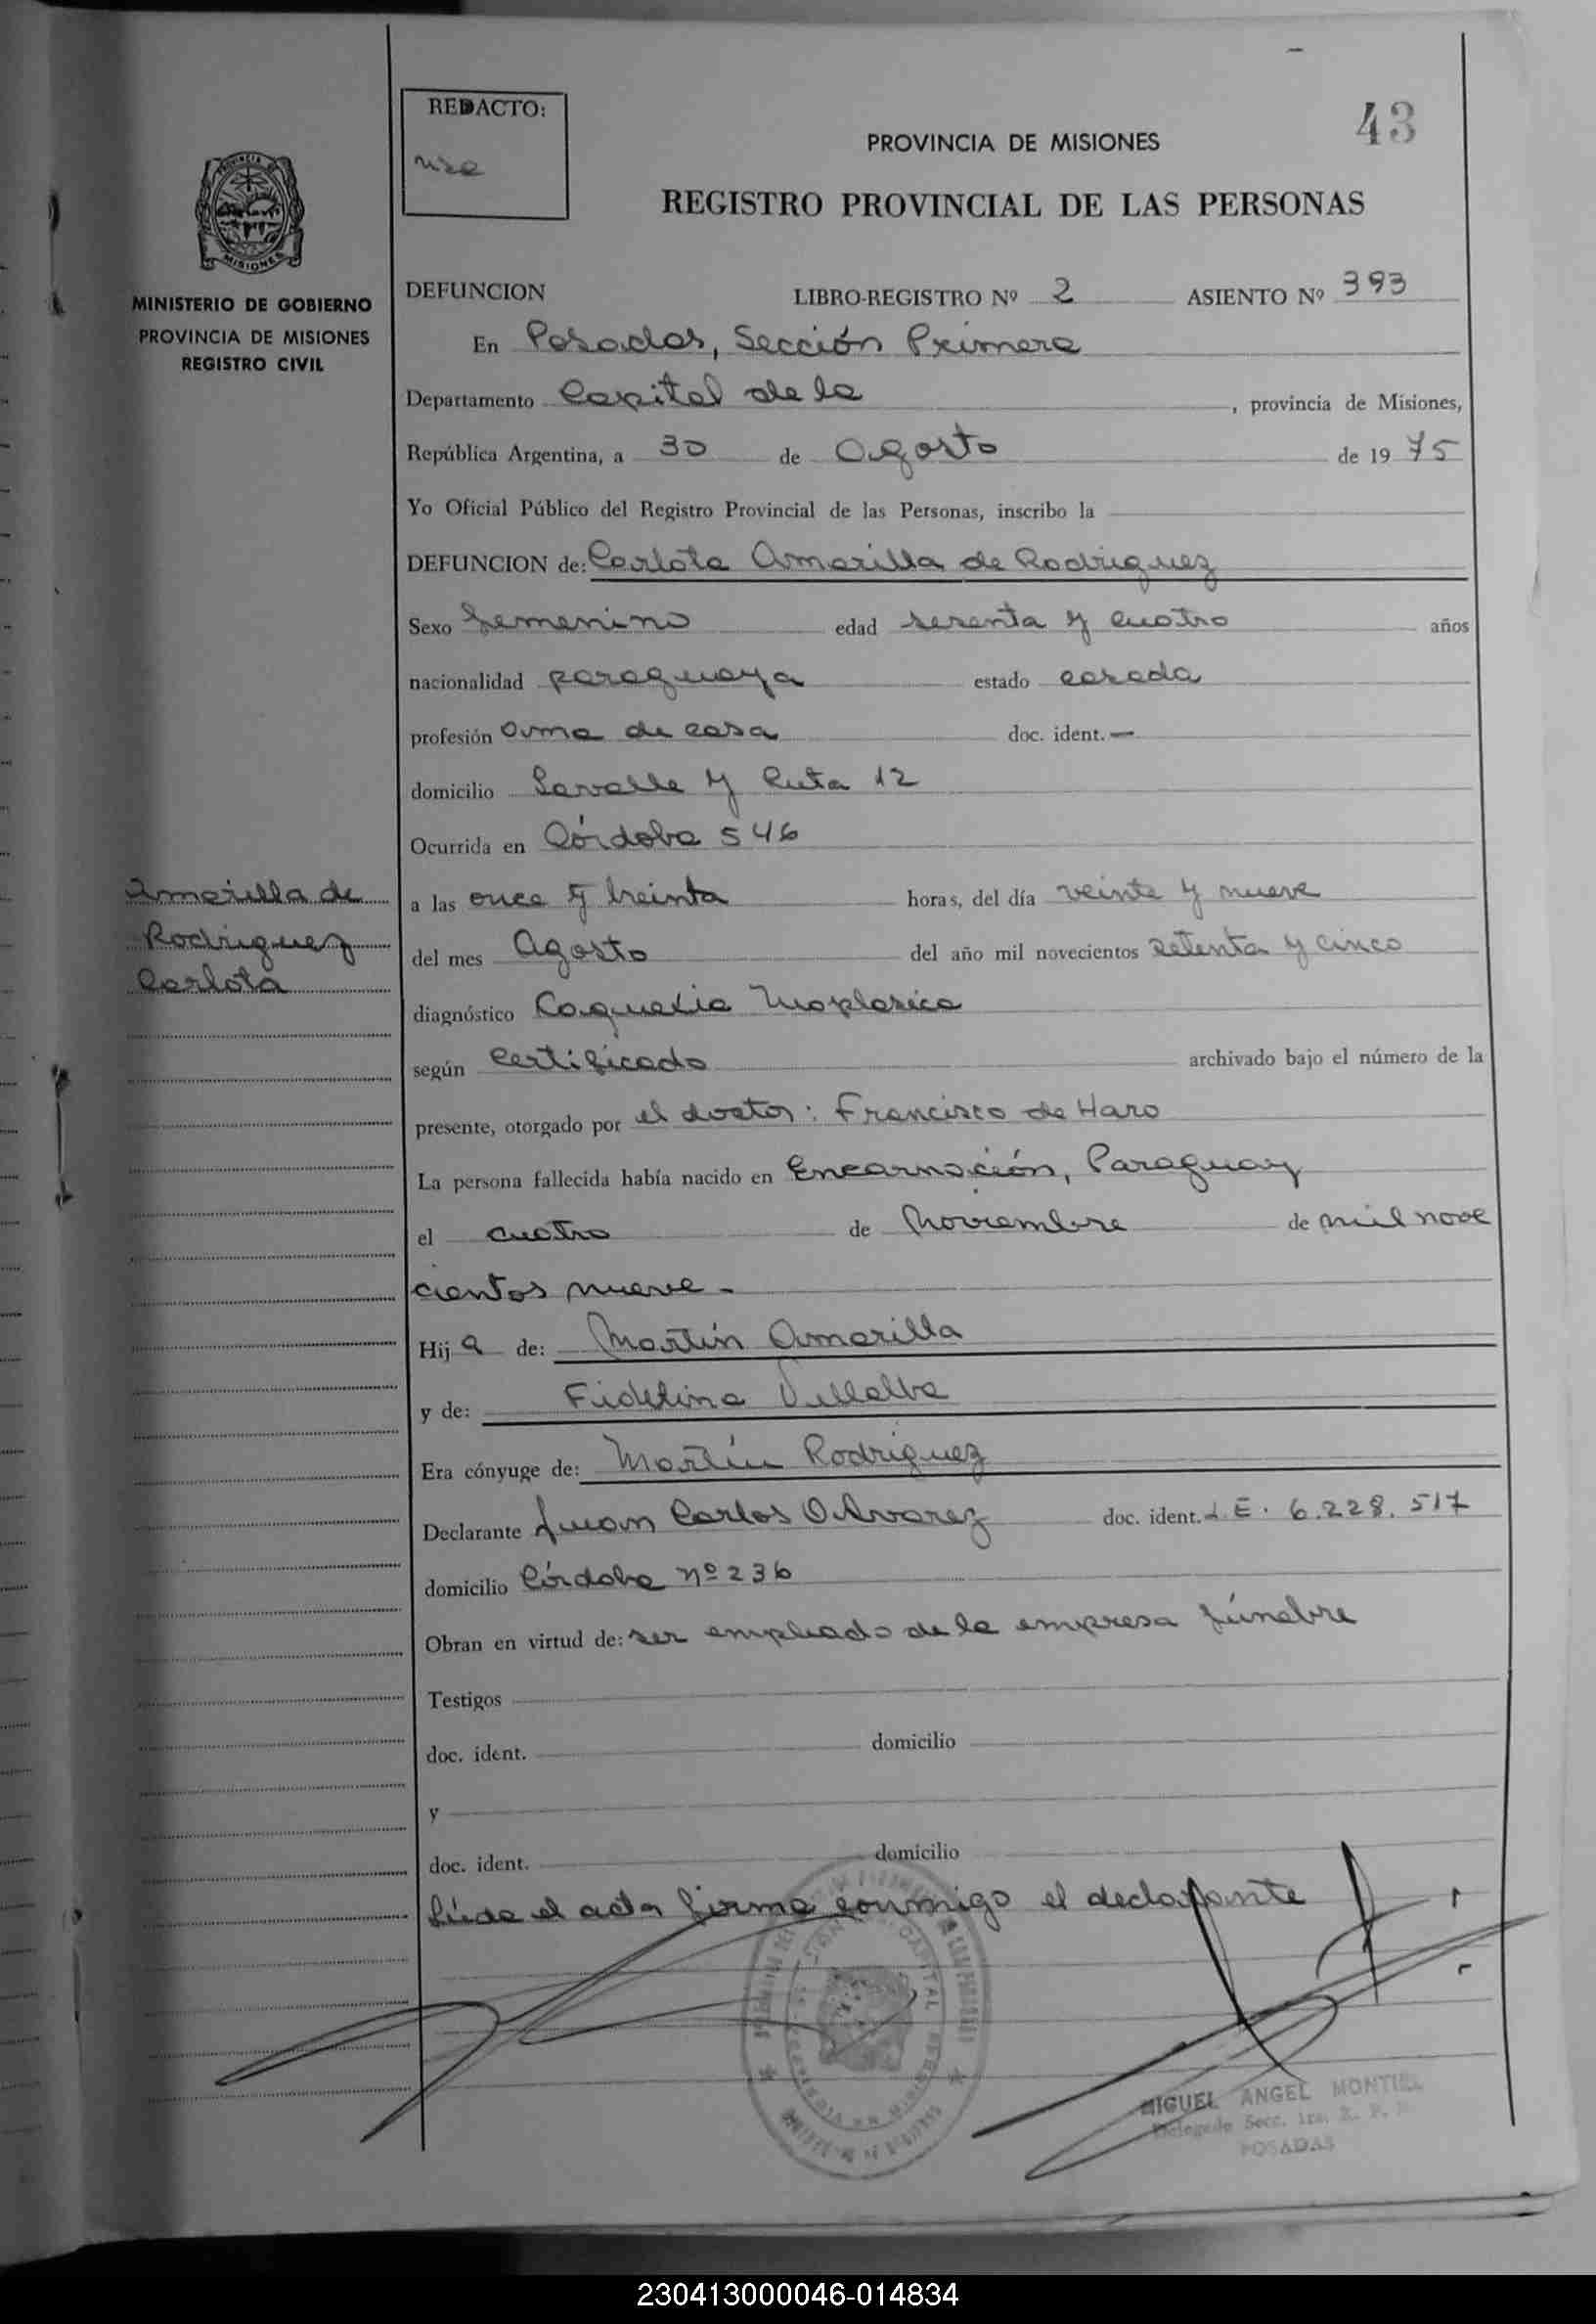 43
REDACTO:
PROVINCIA DE MISIONES
REGISTRO PROVINCIAL DE LAS PERSONAS
PROVINCIA DE
MISIONES
MINISTERIO DE GOBIERNO
PROVINCIA DE MISIONES
REGISTRO CIVIL
DEFUNCION LIBRO-REGISTRO Nº 2 ASIENTO Nº 393
En Posadas, Sección Primera
Departamento Capital de la , provincia de Misiones,
República Argentina, a 30 de Agosto de 1975
Yo Oficial Público del Registro Provincial de las Personas, inscribo la
DEFUNCION de: Carlota Amarilla de Rodriguez
Sexo femenino edad sesenta y cuatro años
nacionalidad paraguaya estado casada
profesión ama de casa doc. ident. —
domicilio Lavalle y Ruta 12
Ocurrida en Córdoba 546
Amarilla de
Rodriguez
Carlota
a las once y treinta horas, del día veinte y nueve
del mes Agosto del año mil novecientos setenta y cinco
diagnóstico Caquexia
según Certificado archivado bajo el número de la
presente, otorgado por el doctor: Francisco de Haro
La persona fallecida había nacido en Encarnación, Paraguay
el cuatro de Noviembre de mil nove
cientos nueve -
Hija de: Martín Amarilla
y de: Fidelina Villalba
Era cónyuge de: Martín Rodriguez
Declarante Juan Carlos Alvarez doc. ident. L E. 6.228.517
domicilio Córdoba nº 236
Obran en virtud de: ser empleado de la empresa fúnebre
Testigos
doc. ident. domicilio
y
doc. ident. domicilio
Leída el acta firma conmigo el declarante
CAPITAL
MIGUEL ANGEL MONTIEL
Delegado Secc. 1ra. R. P.
POSADAS
230413000046-014834